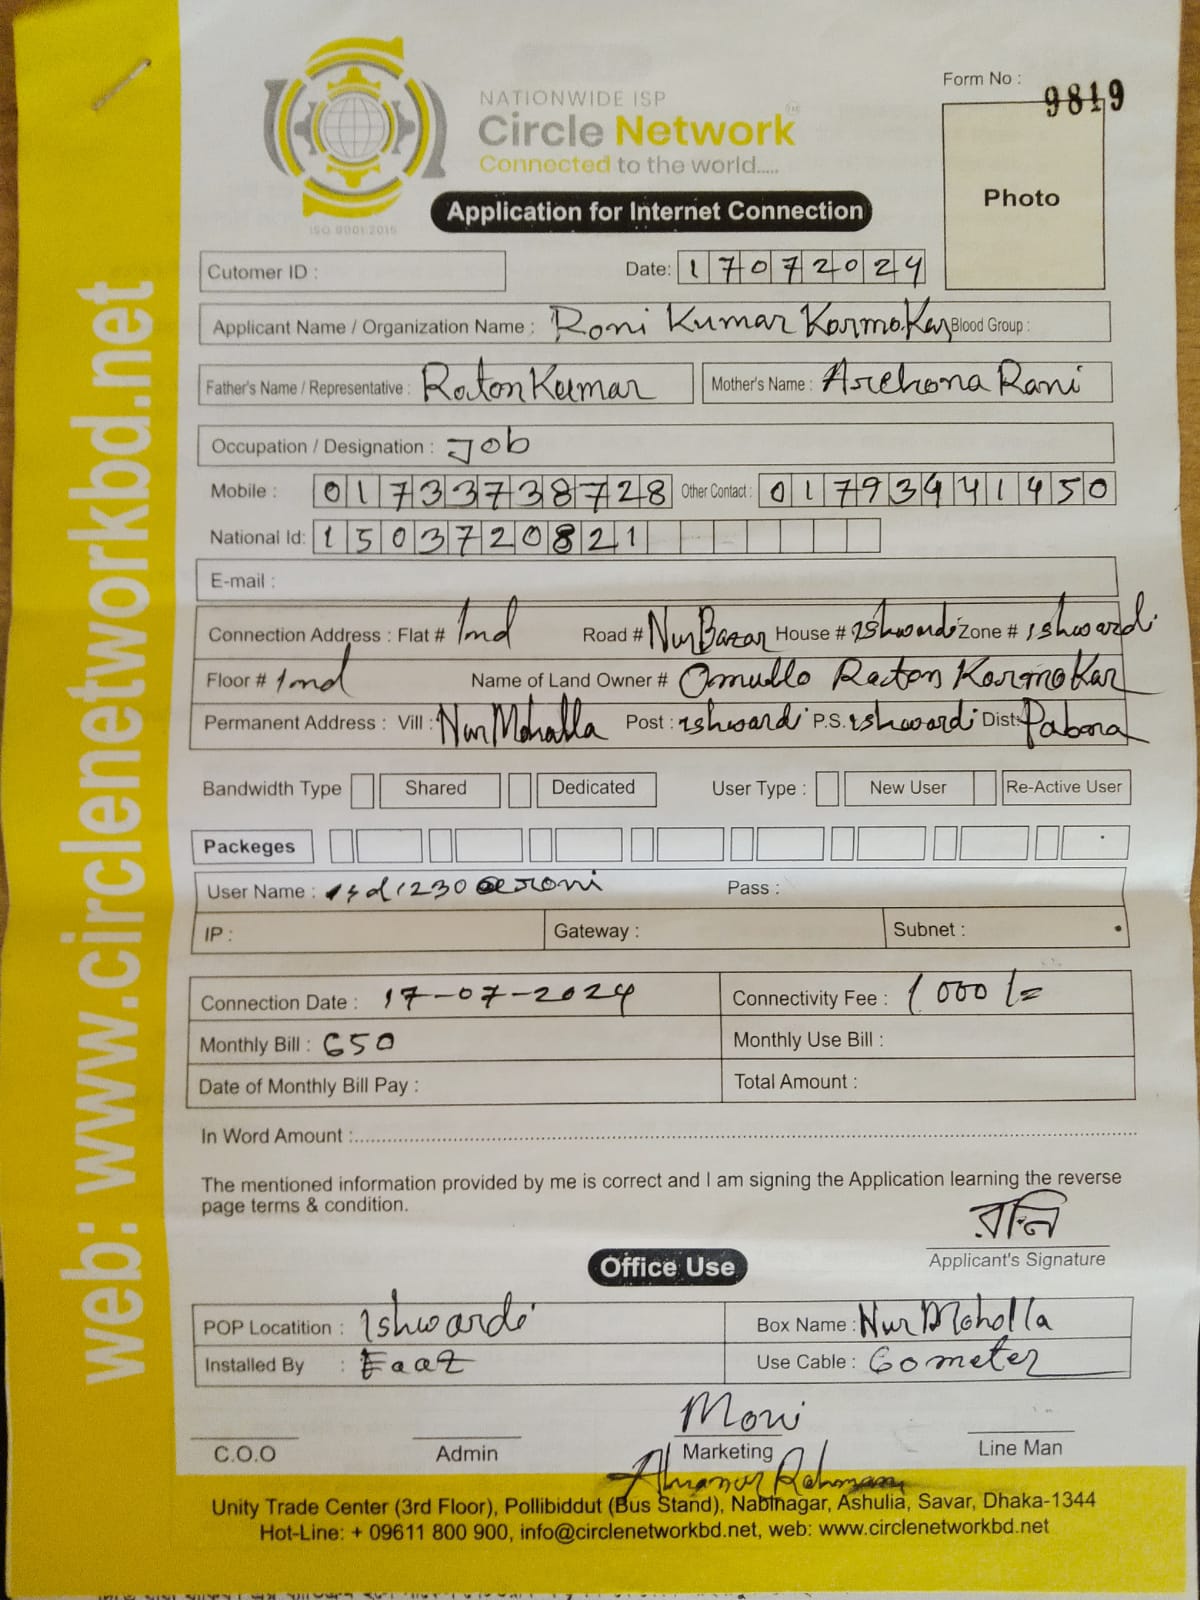 web: www.circlenetworkbd.net
NATIONWIDE ISP
Circle Network
Connected to the world.....
ISO 9001:2015
Form No : 9819
Photo
Application for Internet Connection
Cutomer ID :
Date: 17072024
Applicant Name / Organization Name : Roni Kumar Karmokar Blood Group :
Father's Name / Representative : Raton Kumar Mother's Name : Archona Rani
Occupation / Designation : Job
Mobile : 01733738728 Other Contact : 01793441450
National Id: 1503720821
E-mail :
Connection Address : Flat # 1nd Road # Nur Bazar House # ishwardi Zone # ishwardi
Floor # 1nd Name of Land Owner # Omullo Raton Karmokar
Permanent Address : Vill : Nur Mohalla Post : ishwardi P.S. ishwardi Dist: Pabna
Bandwidth Type Shared Dedicated User Type : New User Re-Active User
Packeges
User Name : Pass :
IP : Gateway : Subnet :
Connection Date : 17-07-2024 Connectivity Fee : 1000/=
Monthly Bill : 650 Monthly Use Bill :
Date of Monthly Bill Pay : Total Amount :
In Word Amount :
The mentioned information provided by me is correct and I am signing the Application learning the reverse
page terms & condition.
রনি
Applicant's Signature
Office Use
POP Locatition : Ishwardi Box Name : Nur Moholla
Installed By : Eaaz Use Cable : 60 meter
Moni
C.O.O Admin Marketing Line Man
Rahman
Unity Trade Center (3rd Floor), Pollibiddut (Bus Stand), Nabinagar, Ashulia, Savar, Dhaka-1344
Hot-Line: + 09611 800 900, info@circlenetworkbd.net, web: www.circlenetworkbd.net